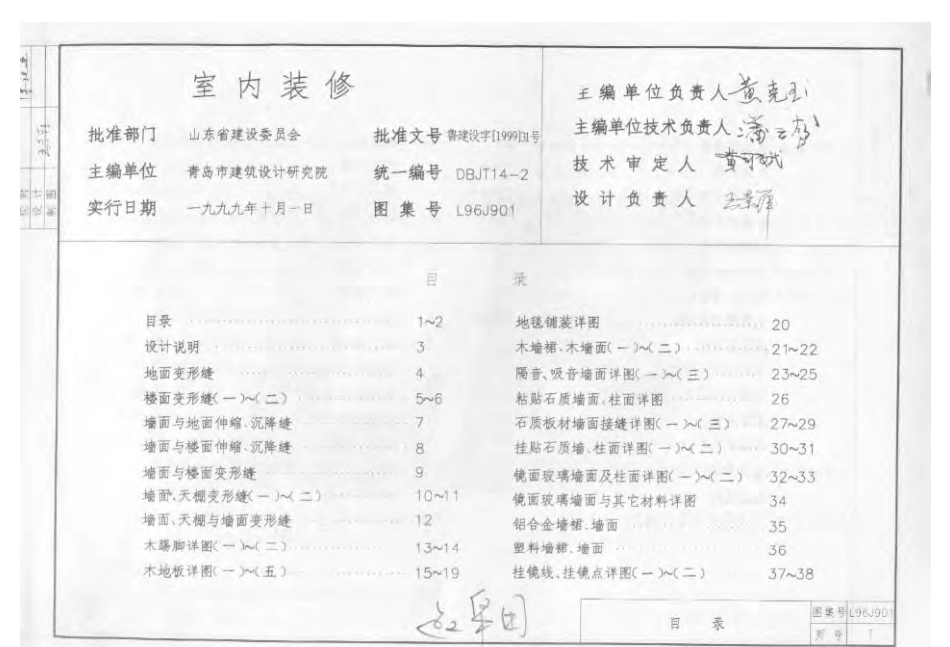 室内装修
批准部门 山东省建设委员会 批准文号 鲁建设字[1999]31号
主编单位 青岛市建筑设计研究院 统一编号 DBJT14-2
实行日期 一九九九年十月一日 图集号 L96J901
主编单位负责人
主编单位技术负责人
技术审定人
设计负责人
目 录
目录 1~2
设计说明 3
地面变形缝 4
楼面变形缝(一)~(二) 5~6
墙面与地面伸缩、沉降缝 7
墙面与楼面伸缩、沉降缝 8
墙面与楼面变形缝 9
墙面、天棚变形缝(一)~(二) 10~11
墙面、天棚与墙面变形缝 12
木踢脚详图(一)~(二) 13~14
木地板详图(一)~(五) 15~19
地毯铺装详图 20
木墙裙、木墙面(一)~(二) 21~22
隔音、吸音墙面详图(一)~(三) 23~25
粘贴石质墙面、柱面详图 26
石质板材墙面接缝详图(一)~(三) 27~29
挂贴石质墙、柱面详图(一)~(二) 30~31
镜面玻璃墙面及柱面详图(一)~(二) 32~33
镜面玻璃墙面与其它材料详图 34
铝合金墙裙、墙面 35
塑料墙裙、墙面 36
挂镜线、挂镜点详图(一)~(二) 37~38
目 录
图集号 L96J901
页号 1